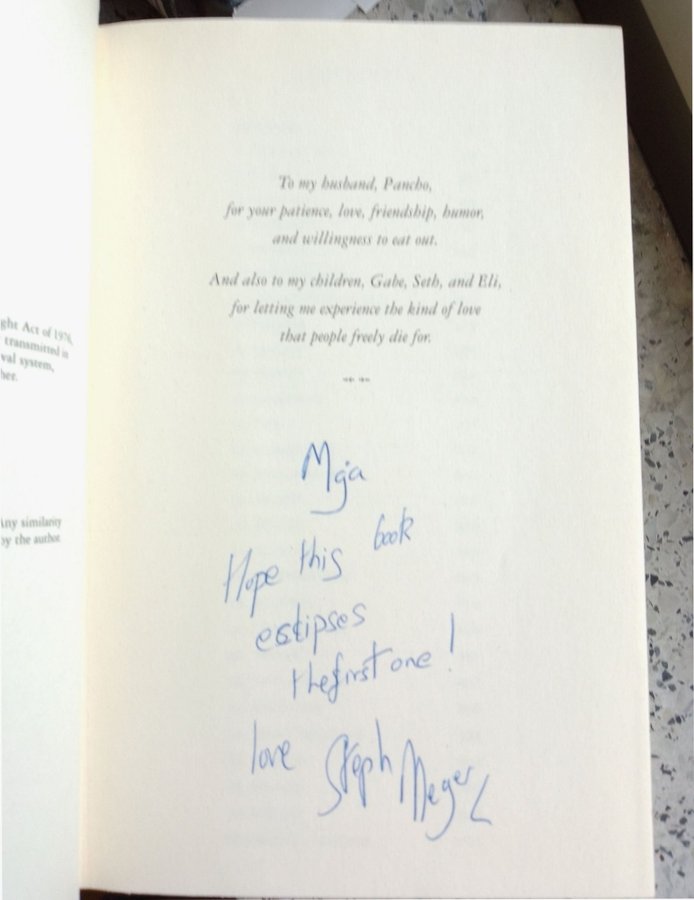 ght Act of 1976,
transmitted in
val system,
her.
Any similarity
by the author
To my husband, Pancho,
for your patience, love, friendship, humor,
and willingness to eat out.
And also to my children, Gabe, Seth, and Eli,
for letting me experience the kind of love
that people freely die for.
Hope this book
esclipses
the first one!
love Steph Meyer